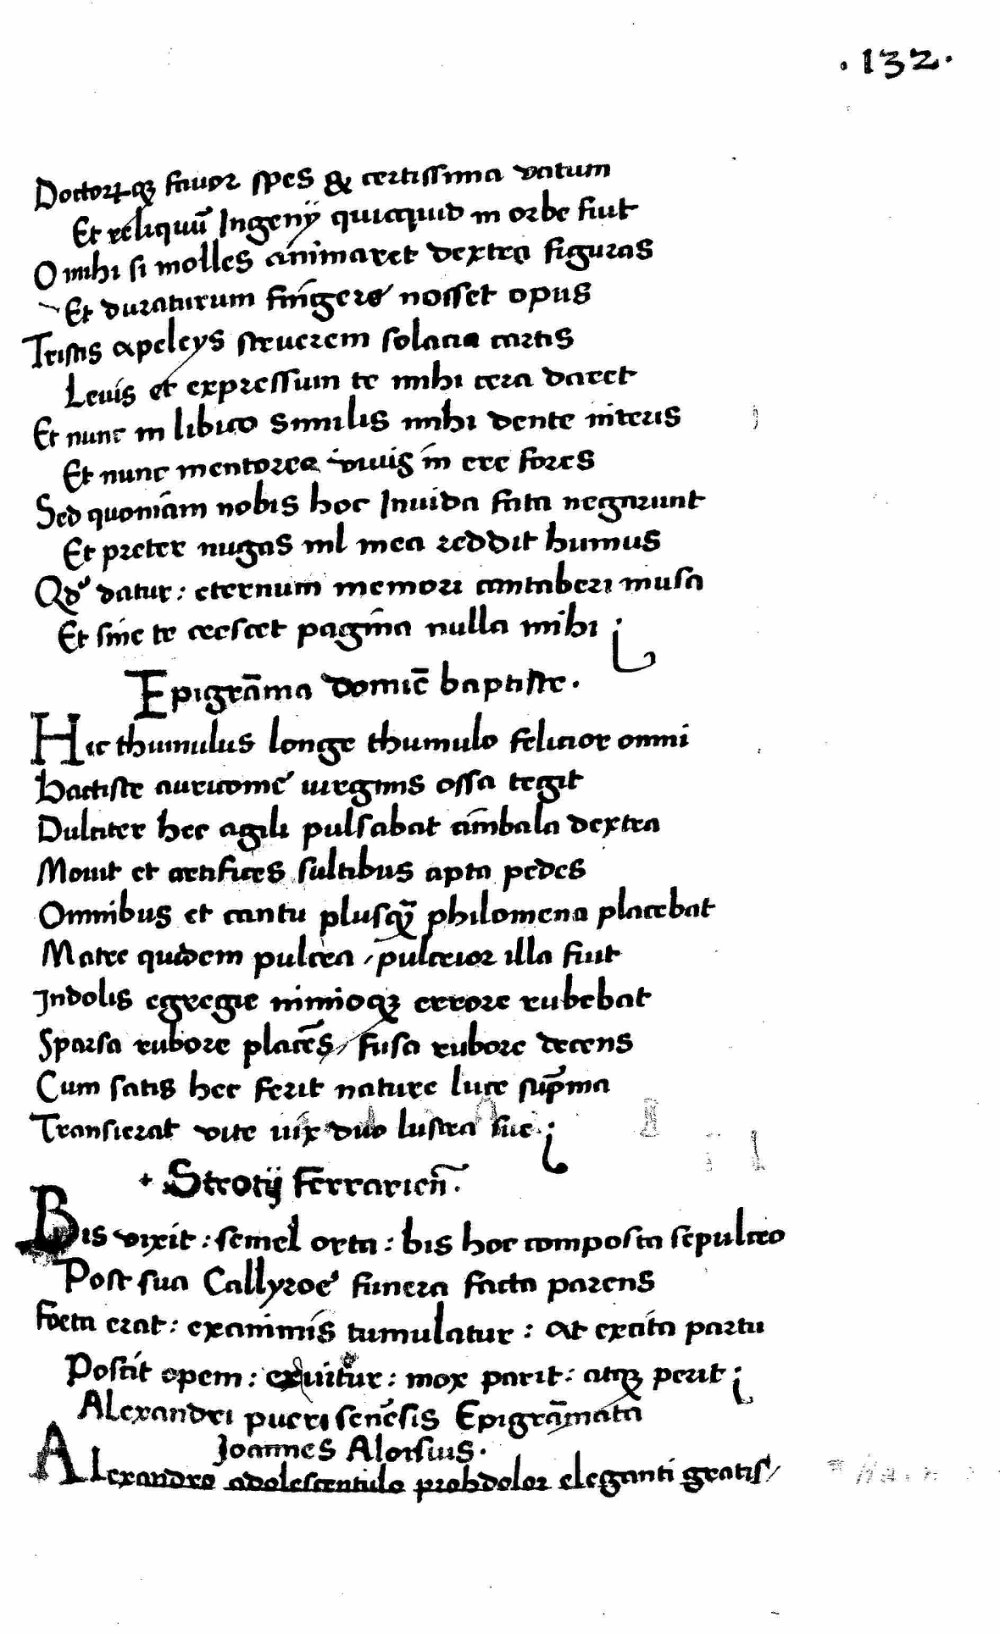 ·132·
Doctorꝝqꝫ favor spes & certissima vatum
Et reliquū Ingenÿ quicquid in orbe fuit
O mihi si molles animaret dextra figuras
Et duraturum fingere nosset opus
Tristis apeleys struerem solacia cartis
Levis et expressum te mihi cera daret
Et nunc in libico similis mihi dente niteris
Et nunc mentorea viuis in ere fores
Sed quoniam nobis hoc Invida fata negarunt
Et preter nugas nil mea reddit humus
Qd' datur: eternum memori cantaberi musa
Et sine te crescet pagina nulla mihi ;
Epigrāma domic̄ baptiste.
Hic thumulus longe thumulo felicior omni
Bactiste auricome virginis ossa tegit
Dulciter hec agili pulsabat cimbala dextra
Mouit et artifices sultibus apta pedes
Omnibus et cantu plusqꝫ philomena placebat
Matre quidem pulcra / pulcrior illa fuit
Indolis egregie nimioqꝫ errore rubebat
Sparsa rubore placēs / fusa rubore decens
Cum satis hec ferit nature luce sup̄ma
Transierat vite vix duo lustra sue ;
+ Strotij Ferrarien̄.
Bis vixit: semel orta: bis hoc composta sepulcro
Post sua Callyroe funera facta parens
Foeta erat: exanimis tumulatur: at excita partu
Poscit opem: exuitur: mox parit: atqꝫ perit ;
Alexandri pueri senēsis Epigrāmata
Joannes Aloisius.
Alexandro adolescentulo prohdolor eleganti gratis /